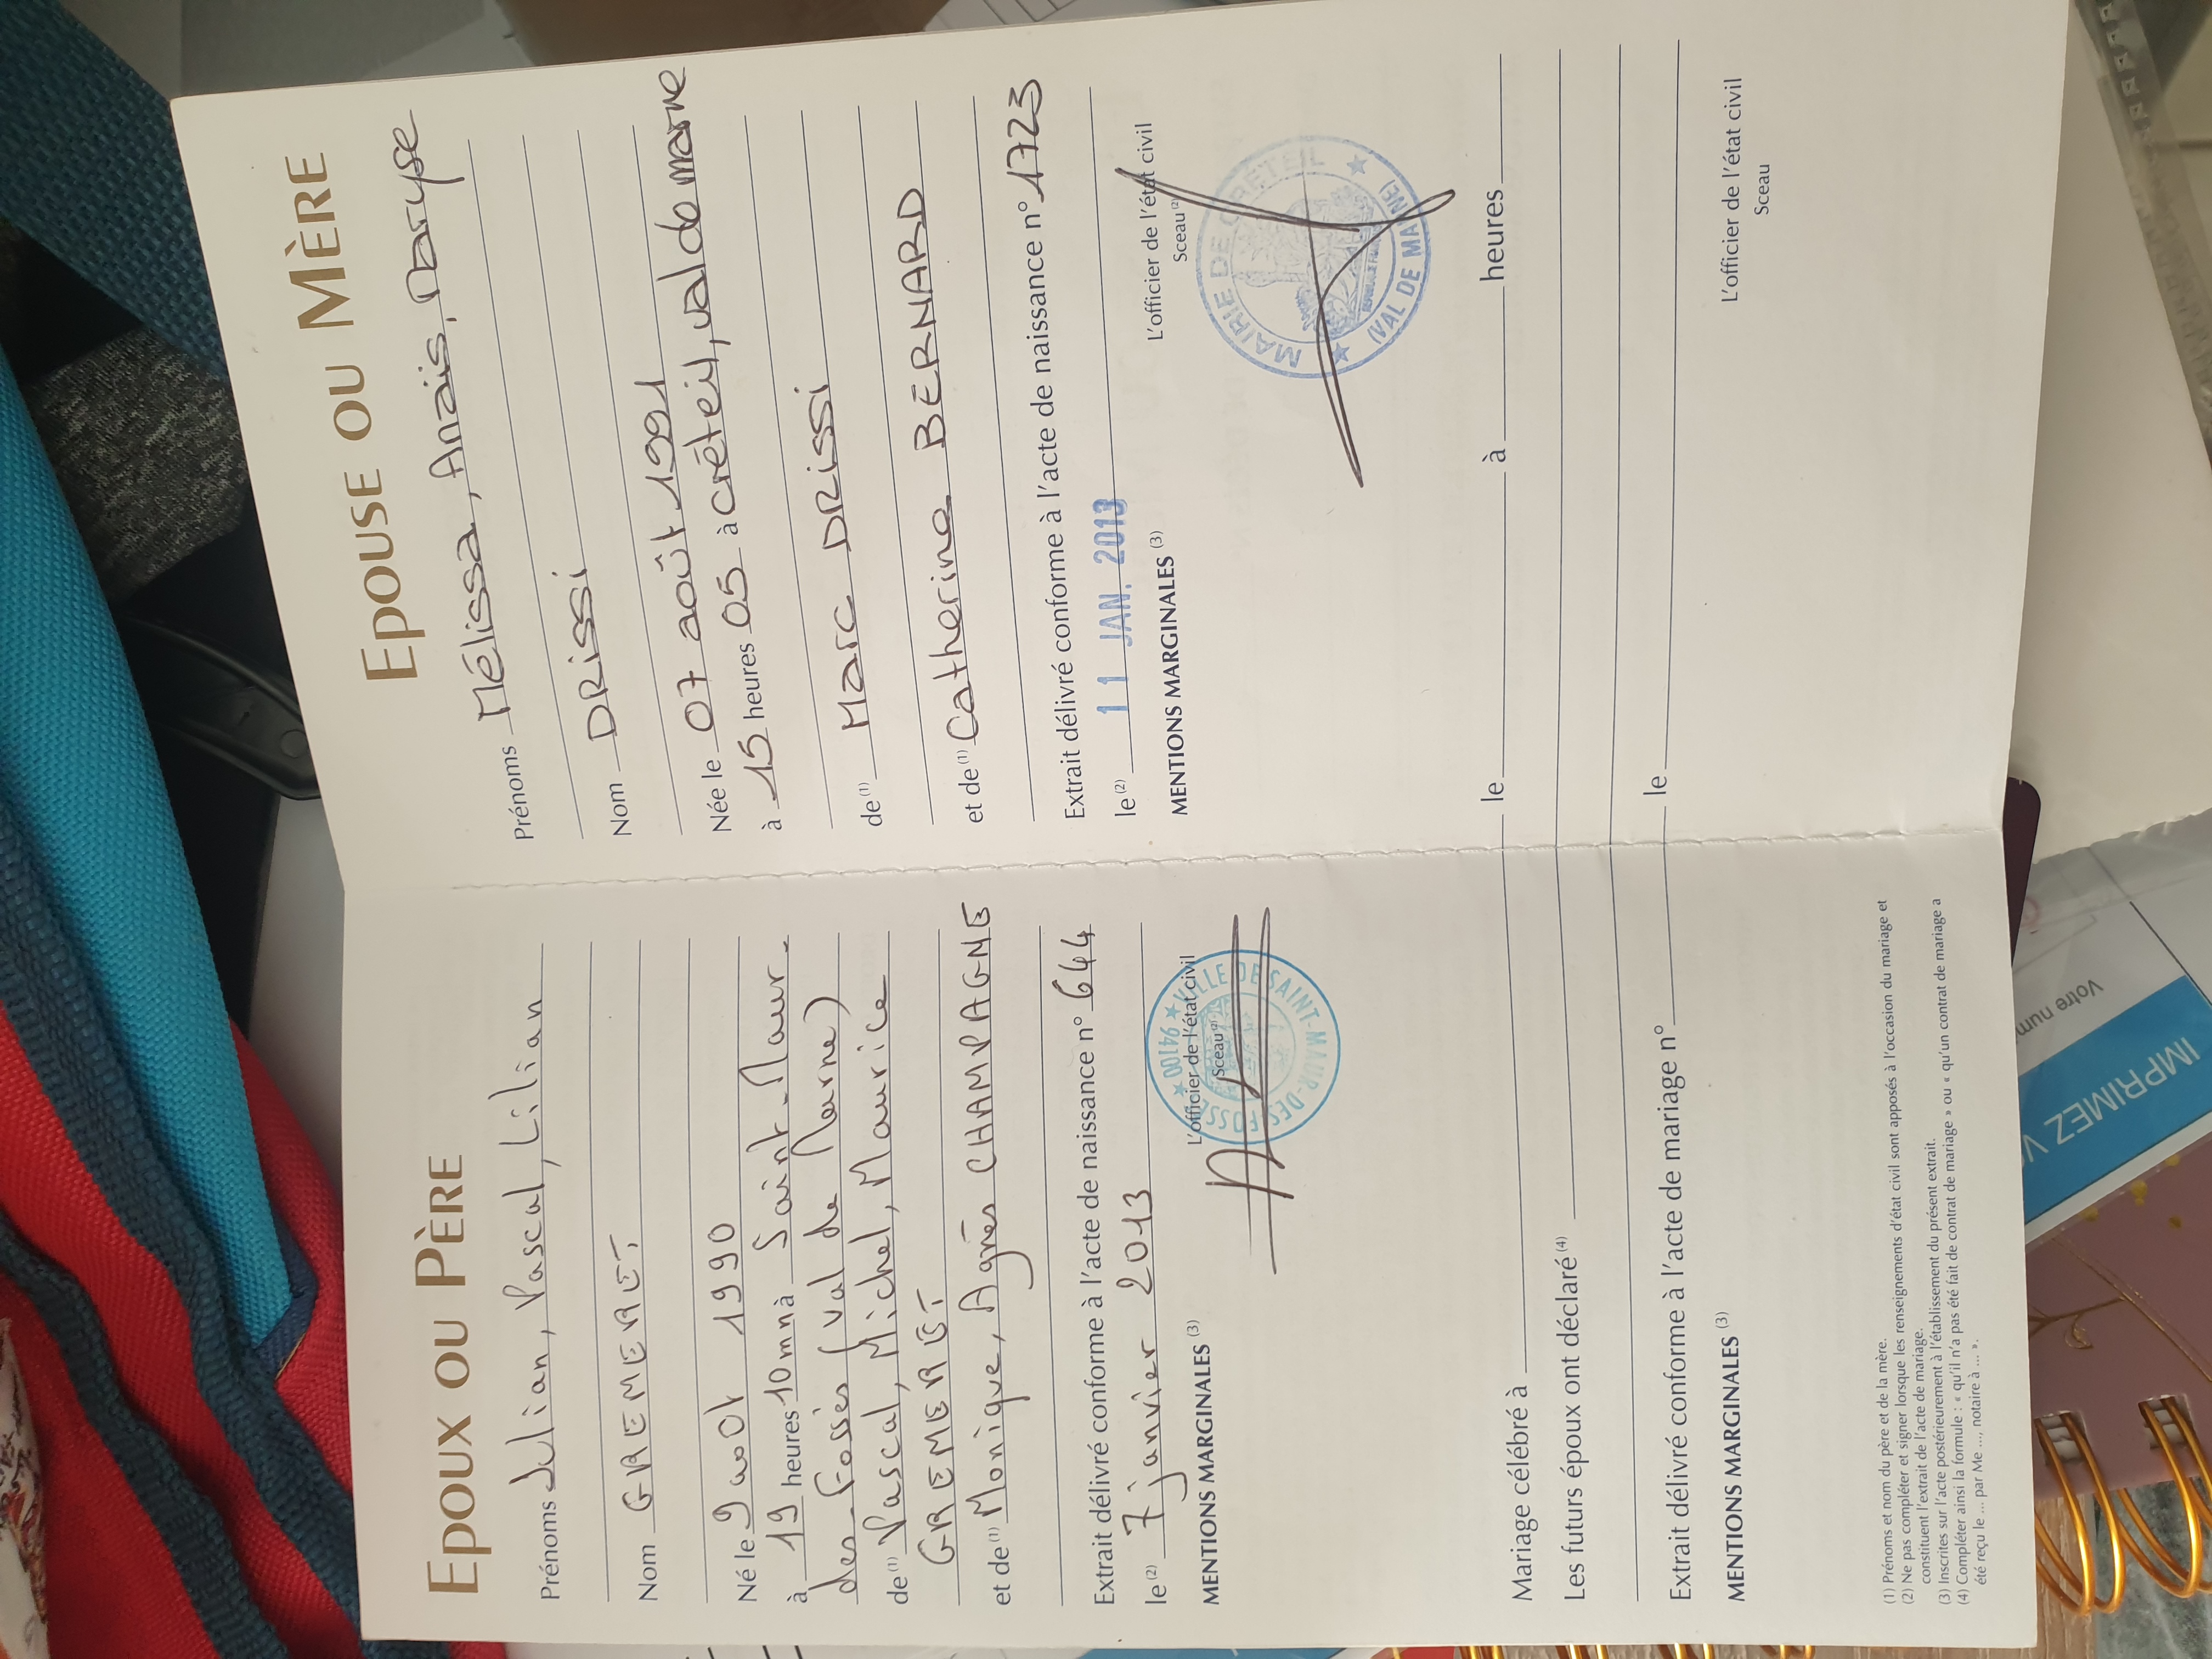 EPOUX OU PÈRE
Prénoms Julian, Pascal, Lilian
Nom GREMERET
Né le 9 août 1990
à 19 heures 10mn à Saint-Maur-
des-Fossés (Val de Marne)
de (1) Pascal, Michel, Maurice
GREMERET
et de (1) Monique, Agnès CHAMPAGNE
Extrait délivré conforme à l'acte de naissance n° 644
le (2) 7 janvier 2013
L'officier de l'état civil
Sceau (2)
94100 ★ VILLE DE SAINT-MAUR-DES-FOSSÉS ★
MENTIONS MARGINALES (3)
EPOUSE OU MÈRE
Prénoms Mélissa, Anaïs, Maryse
Nom DRISSI
Née le 07 août 1991
à 15 heures 05 à Créteil, val de marne
de (1) Marc DRISSI
et de (1) Catherine BERNARD
Extrait délivré conforme à l'acte de naissance n° 1723
le (2) 11 JAN. 2013
L'officier de l'état civil
Sceau (2)
MAIRIE DE CRÉTEIL
★ (VAL DE MARNE) ★
MENTIONS MARGINALES (3)
Mariage célébré à le à heures
Les futurs époux ont déclaré (4)
Extrait délivré conforme à l'acte de mariage n° le
MENTIONS MARGINALES (3)
L'officier de l'état civil
Sceau
(1) Prénoms et nom du père et de la mère.
(2) Ne pas compléter et signer lorsque les renseignements d'état civil sont apposés à l'occasion du mariage et
constituent l'extrait de l'acte de mariage.
(3) Inscrites sur l'acte postérieurement à l'établissement du présent extrait.
(4) Compléter ainsi la formule : « qu'il n'a pas été fait de contrat de mariage » ou « qu'un contrat de mariage a
été reçu le ... par Me ..., notaire à ... ».
IMPRIMEZ V
Votre num